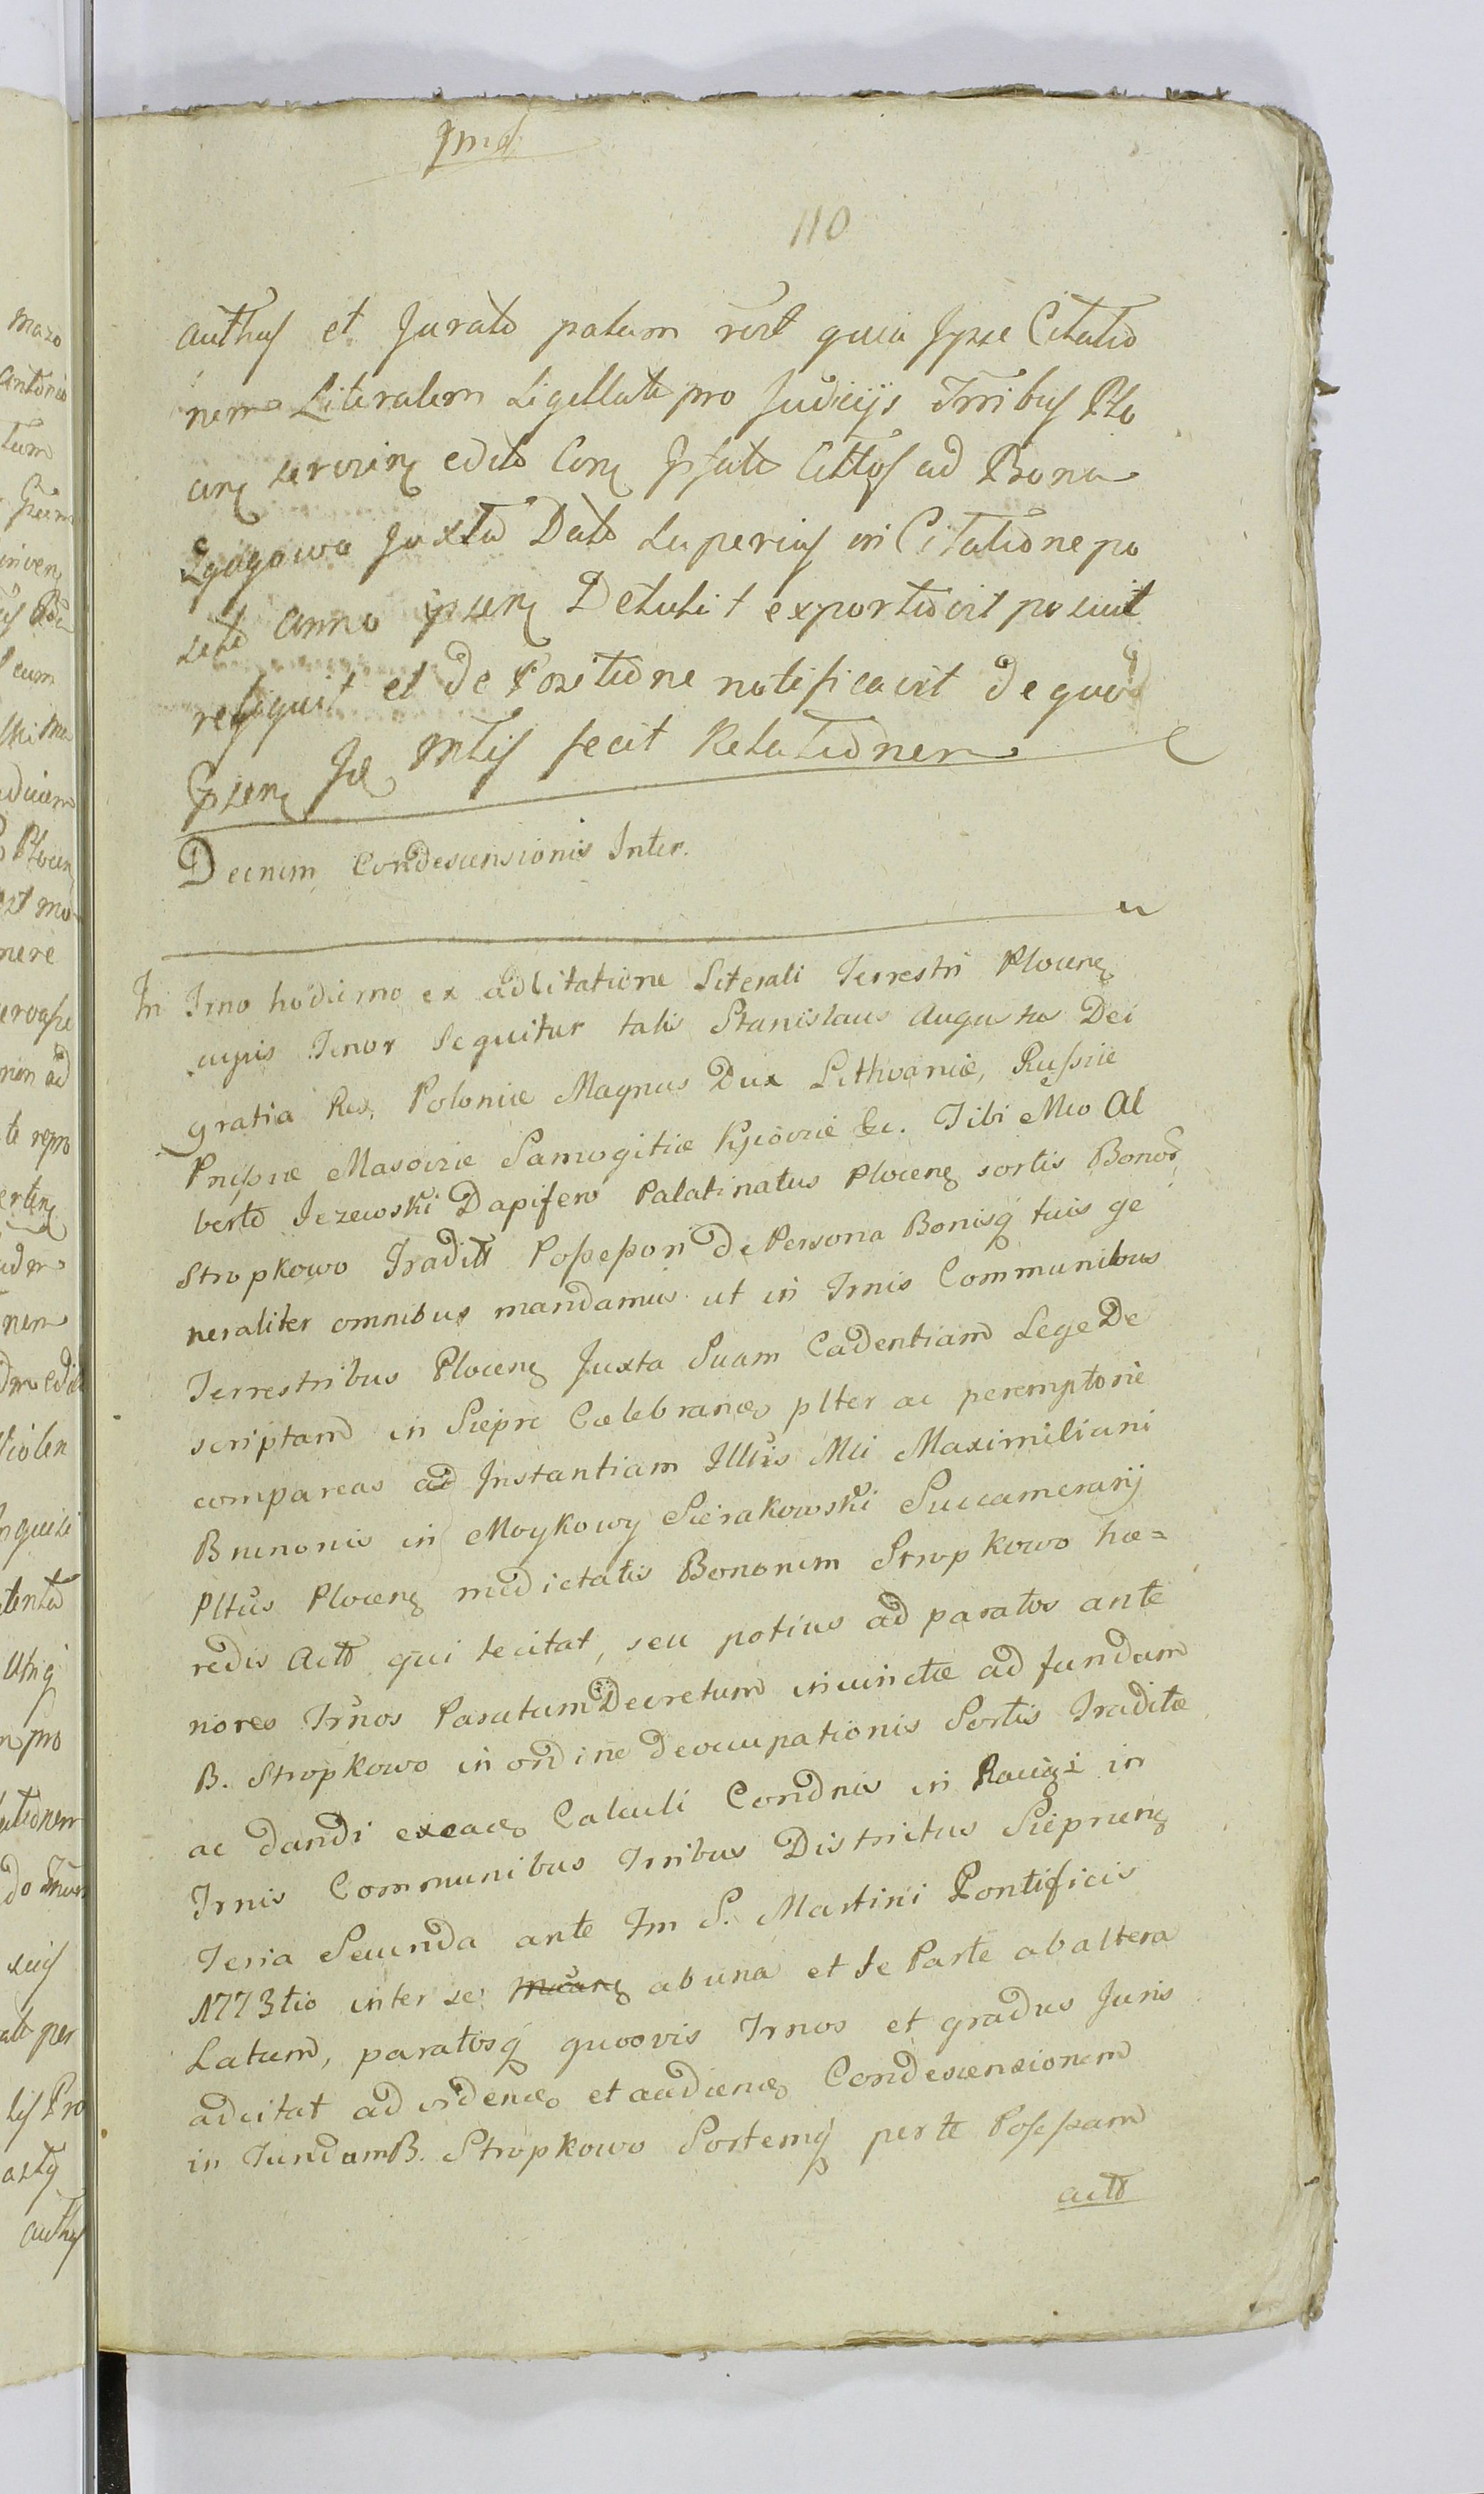 110
authus et Jurato palam rect quia Ipse Citatio
nem Literalem Sigillat pro Judicijs Trribus Plo
cen servien edito Con Ipsat Cittus ad Bona
Juxta Dato superius in Citatione po
sito anno ipsen Detulit exportavit posuit
reliquit et de Positione notificavit de quo
Ipsen Je Mtis fecit Relationem
Decnem Condescensionis Inter.
In Trno hodierno ex adcitatione Literali Terrestri Plocen
cujus Tenor Sequitur talis Stanislaus Augustus Dei
gratia Rex, Poloniæ Magnus Dux Lithvaniæ, Russiæ
Prussiæ Masoviæ Samogitiæ Kijoviæ &c. Tibi Mco Al
berto Jezewski Dapifero Palatinatus Plocen sortis Bonor
Stropkowo Tradit Possessori De Persona Bonisq tuis ge
neraliter omnibus mandamus ut in Trnis Communibus
Terrestribus Plocen Juxta Suam Cadentiam Lege De
scriptam in Sieprc Celebran plter ac peremptorie
compareas ad Instantiam Illtris Mci Maximiliani
Brunonis in Moykowy Sierakowski Succamerarij
Pltus Plocen medietatis Bonorum Stropkowo hæ=
redis Act qui te citat, seu potius ad paratos ante
riores Trnos Paratum Decretum iniunctæ ad fundum
B. Stropkowo in ordine deoccupationis Sortis Traditæ
ac dandi exeac Calculi Condnis in Raciąż in
Trnis Communibus Trribus Districtus Sieprcen
Feria Secunda ante Fm S. Martini Pontificis
1773tio inter se ab una et te Parte ab altera
Latum, paratosq quosvis Trnos et gradus Juris
adcitat ad viden et audien Condescensionem
in Fundum B. Stropkowo Sortemq per te Possessam
actt